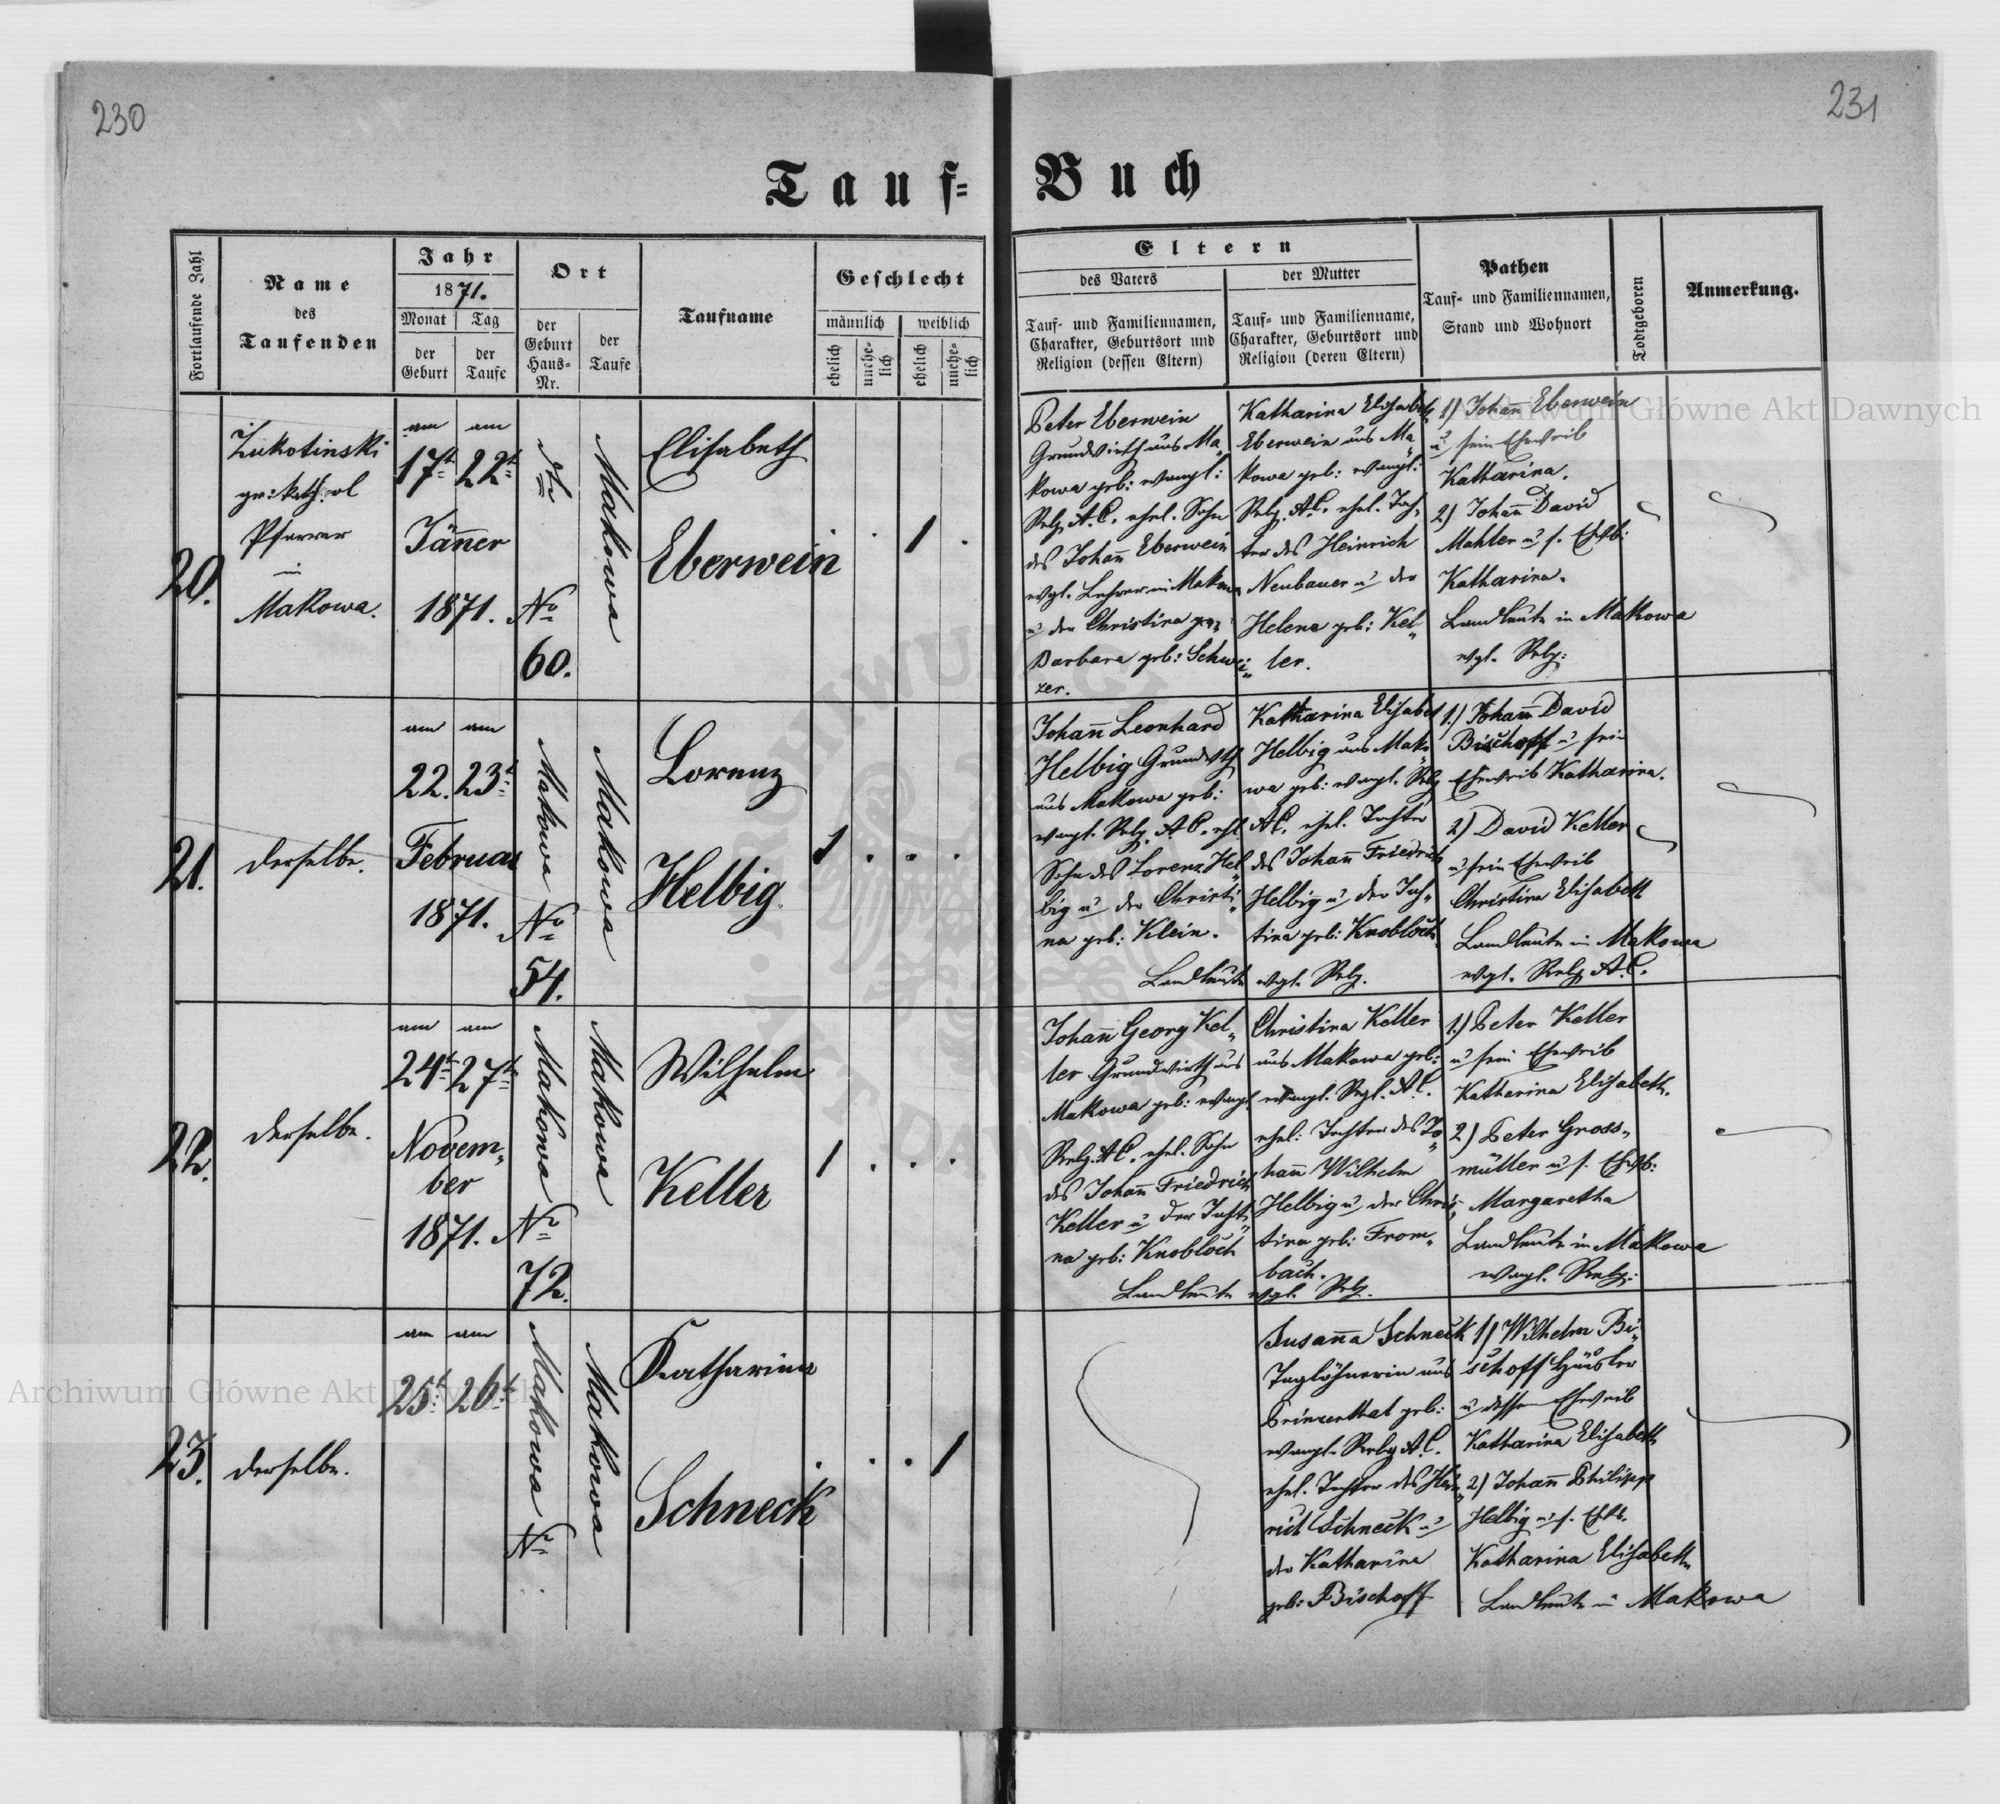 230
231
Tauf=Buch
Fortlaufende Zahl
Name
des
Taufenden
Jahr
1871.
Monat
Tag
der
Geburt
der
Taufe
Ort
der
Geburt
Haus=
Nr.
der
Taufe
Taufname
Geschlecht
männlich
weiblich
ehelich
unehe=
lich
ehelich
unehe=
lich
Eltern
des Vaters
der Mutter
Tauf= und Familiennamen,
Charakter, Geburtsort und
Religion (dessen Eltern)
Tauf= und Familienname,
Charakter, Geburtsort und
Religion (deren Eltern)
Pathen
Tauf= und Familiennamen,
Stand und Wohnort
Todtgeboren
Anmerkung.
20.
Zukotinski
gr: kath.
Pfarrer
in
Makowa.
am
17t
am
22t
Jän̄er
1871.
No
60.
Makowa
Elisabeth
Eberwein
1
Peter Eberwein
Grundwirth aus Ma„
kowa geb: evangl:
Relg A.C. ehel. Sohn
des Johan̄ Eberwein
evgl. Lehrer in Makowa
u der Christina
Barbara geb: Schwei„
zer.
Katharina Elisabeth
Eberwein aus Ma„
kowa geb: evangl:
Relg. A.C. ehel. Toch„
ter des Heinrich
Neubauer u der
Helena geb: Kel„
ler.
1) Johan̄ Eberwein
u sein Eheweib
Katharina.
2) Johan̄ David
Mahler u s. Ehwb:
Katharina.
Landleute in Makowa
evgl. Relg:
21.
derselbe.
am
22.
am
23t
Februar
1871.
Makowa
No
54.
Makowa
Lorenz
Helbig
1
Johan̄ Leonhard
Helbig Grundwth
aus Makowa geb:
evangl. Relg. A.C. ehl.
Sohn des Lorenz Hel„
big u der Christi„
na geb: Klein.
Landleute evgl. Relg.
Katharina Elisabet
Helbig aus Mako„
wa geb: evangl. Relg
A.C. ehel. Tochter
des Johan̄ Friedrich
Helbig u der Jus„
tina geb: Knobloch
1.) Johan̄ David
Bischoff u sein
Eheweib Katharina.
2) David Keller
u sein Eheweib
Christina Elisabeth
Landleute in Makowa
evgl. Relg A.C.
22.
derselbe.
am
24t
am
27t
Novem„
ber
1871.
Makowa
Nr
72.
Makowa
Wilhelm
Keller
1
Johan̄ Georg Kel„
ler Grundwirth aus
Makowa geb: evangl
Relg. A.C. ehel. Sohn
des Johan̄ Friedrich
Keller u der Justi„
na geb: Knobloch
Landleute evgl. Relg.
Christina Keller
aus Makowa geb:
evangl. Regl. A.C.
ehel: Tochter des Jo„
han̄ Wilhelm
Helbig u der Chris„
tina geb: From„
bach.
1.) Peter Keller
u sein Eheweib
Katharina Elisabeth.
2.) Peter Gross„
müller u s. Ehwb:
Margaretha
Landleute in Makowa
evangl. Relg:
23.
derselbe.
am
25t
am
26t
Makowa
Nr
Makowa
Katharina
Schneck
1
Susan̄a Schneck
Taglöhnerin aus
Prinzenthal geb:
evangl. Relg A.C.
ehel. Tochter des Hein„
rich Schneck u
der Katharina
geb: Bischoff
1) Wilhelm Bi„
schoff Häusler
u dessen Eheweib
Katharina Elisabeth
2) Johan̄ Philipp
Helbig u s. Ehb.
Katharina Elisabeth
Landleute in Makowa
Archiwum Główne Akt Dawnych
Archiwum Główne Akt Dawnych